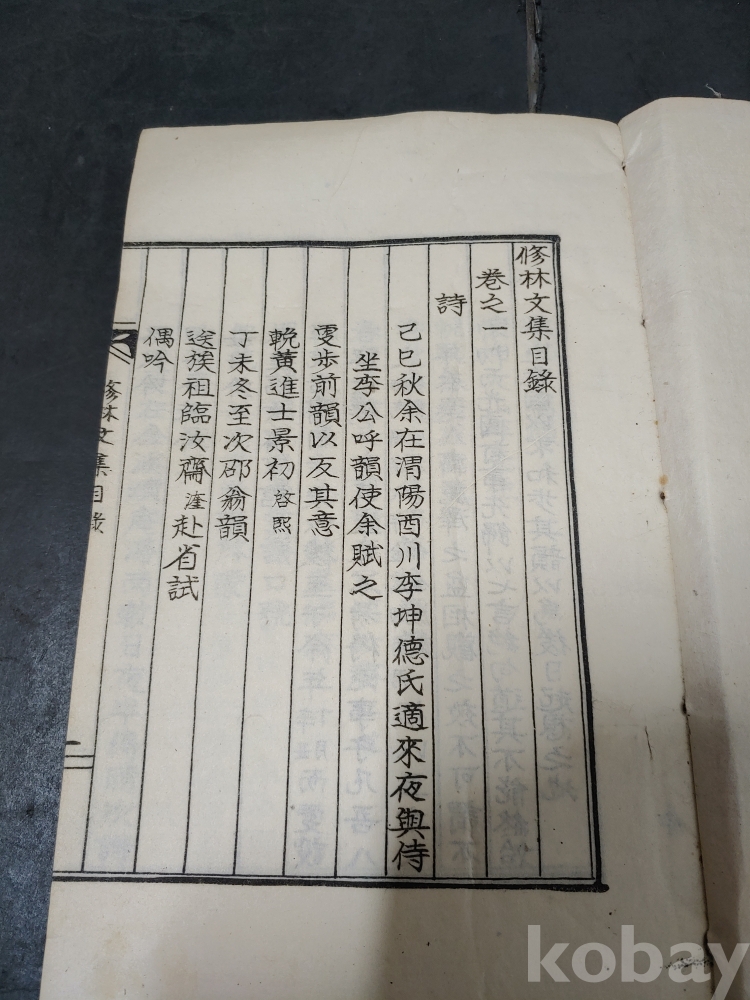 修林文集目錄
卷之一
詩
己巳秋余在渭陽酉川李坤德氏適來夜與侍
坐李公呼韻使余賦之
更步前韻以反其意
輓黃進士景初啓熙
丁未冬至次邵翁韻
送族祖臨汝齋㵓赴省試
偶吟
修林文集目錄
kobay